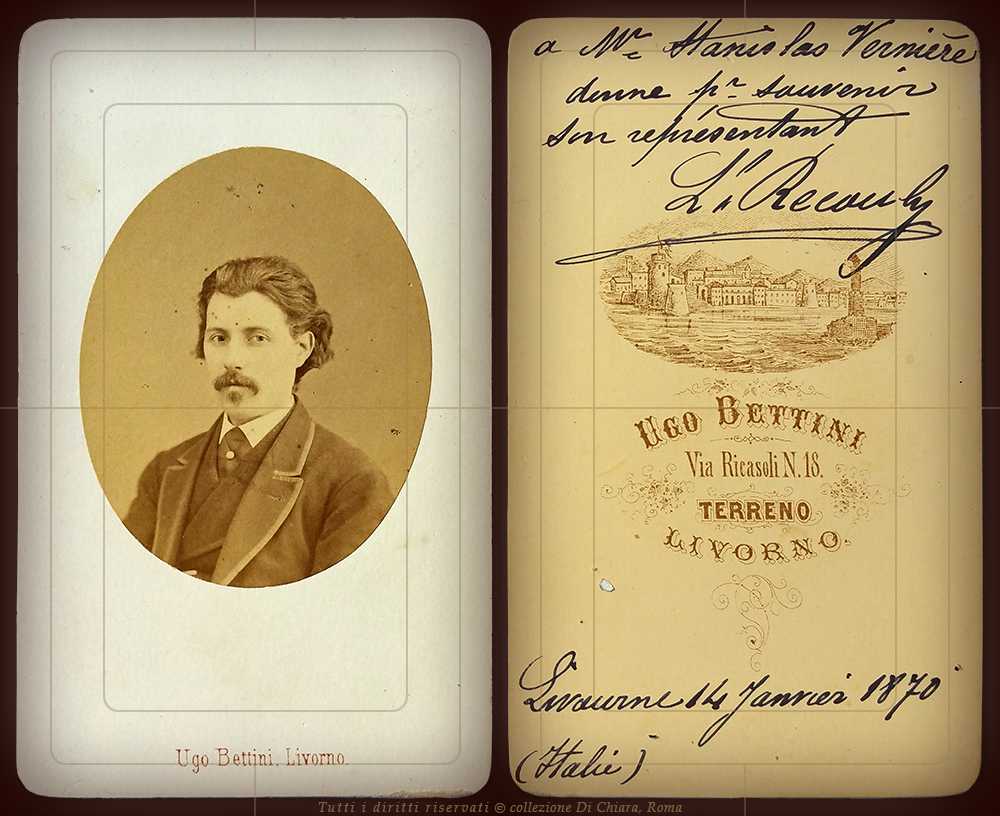 Ugo Bettini, Livorno.
a Mr Stanislas Vernière
donne pr souvenir
son représentant
L. Recouly
UGO BETTINI
Via Ricasoli N. 18.
TERRENO
LIVORNO.
Livourne 14 Janvier 1870
(Italie)
Tutti i diritti riservati © collezione Di Chiara, Roma